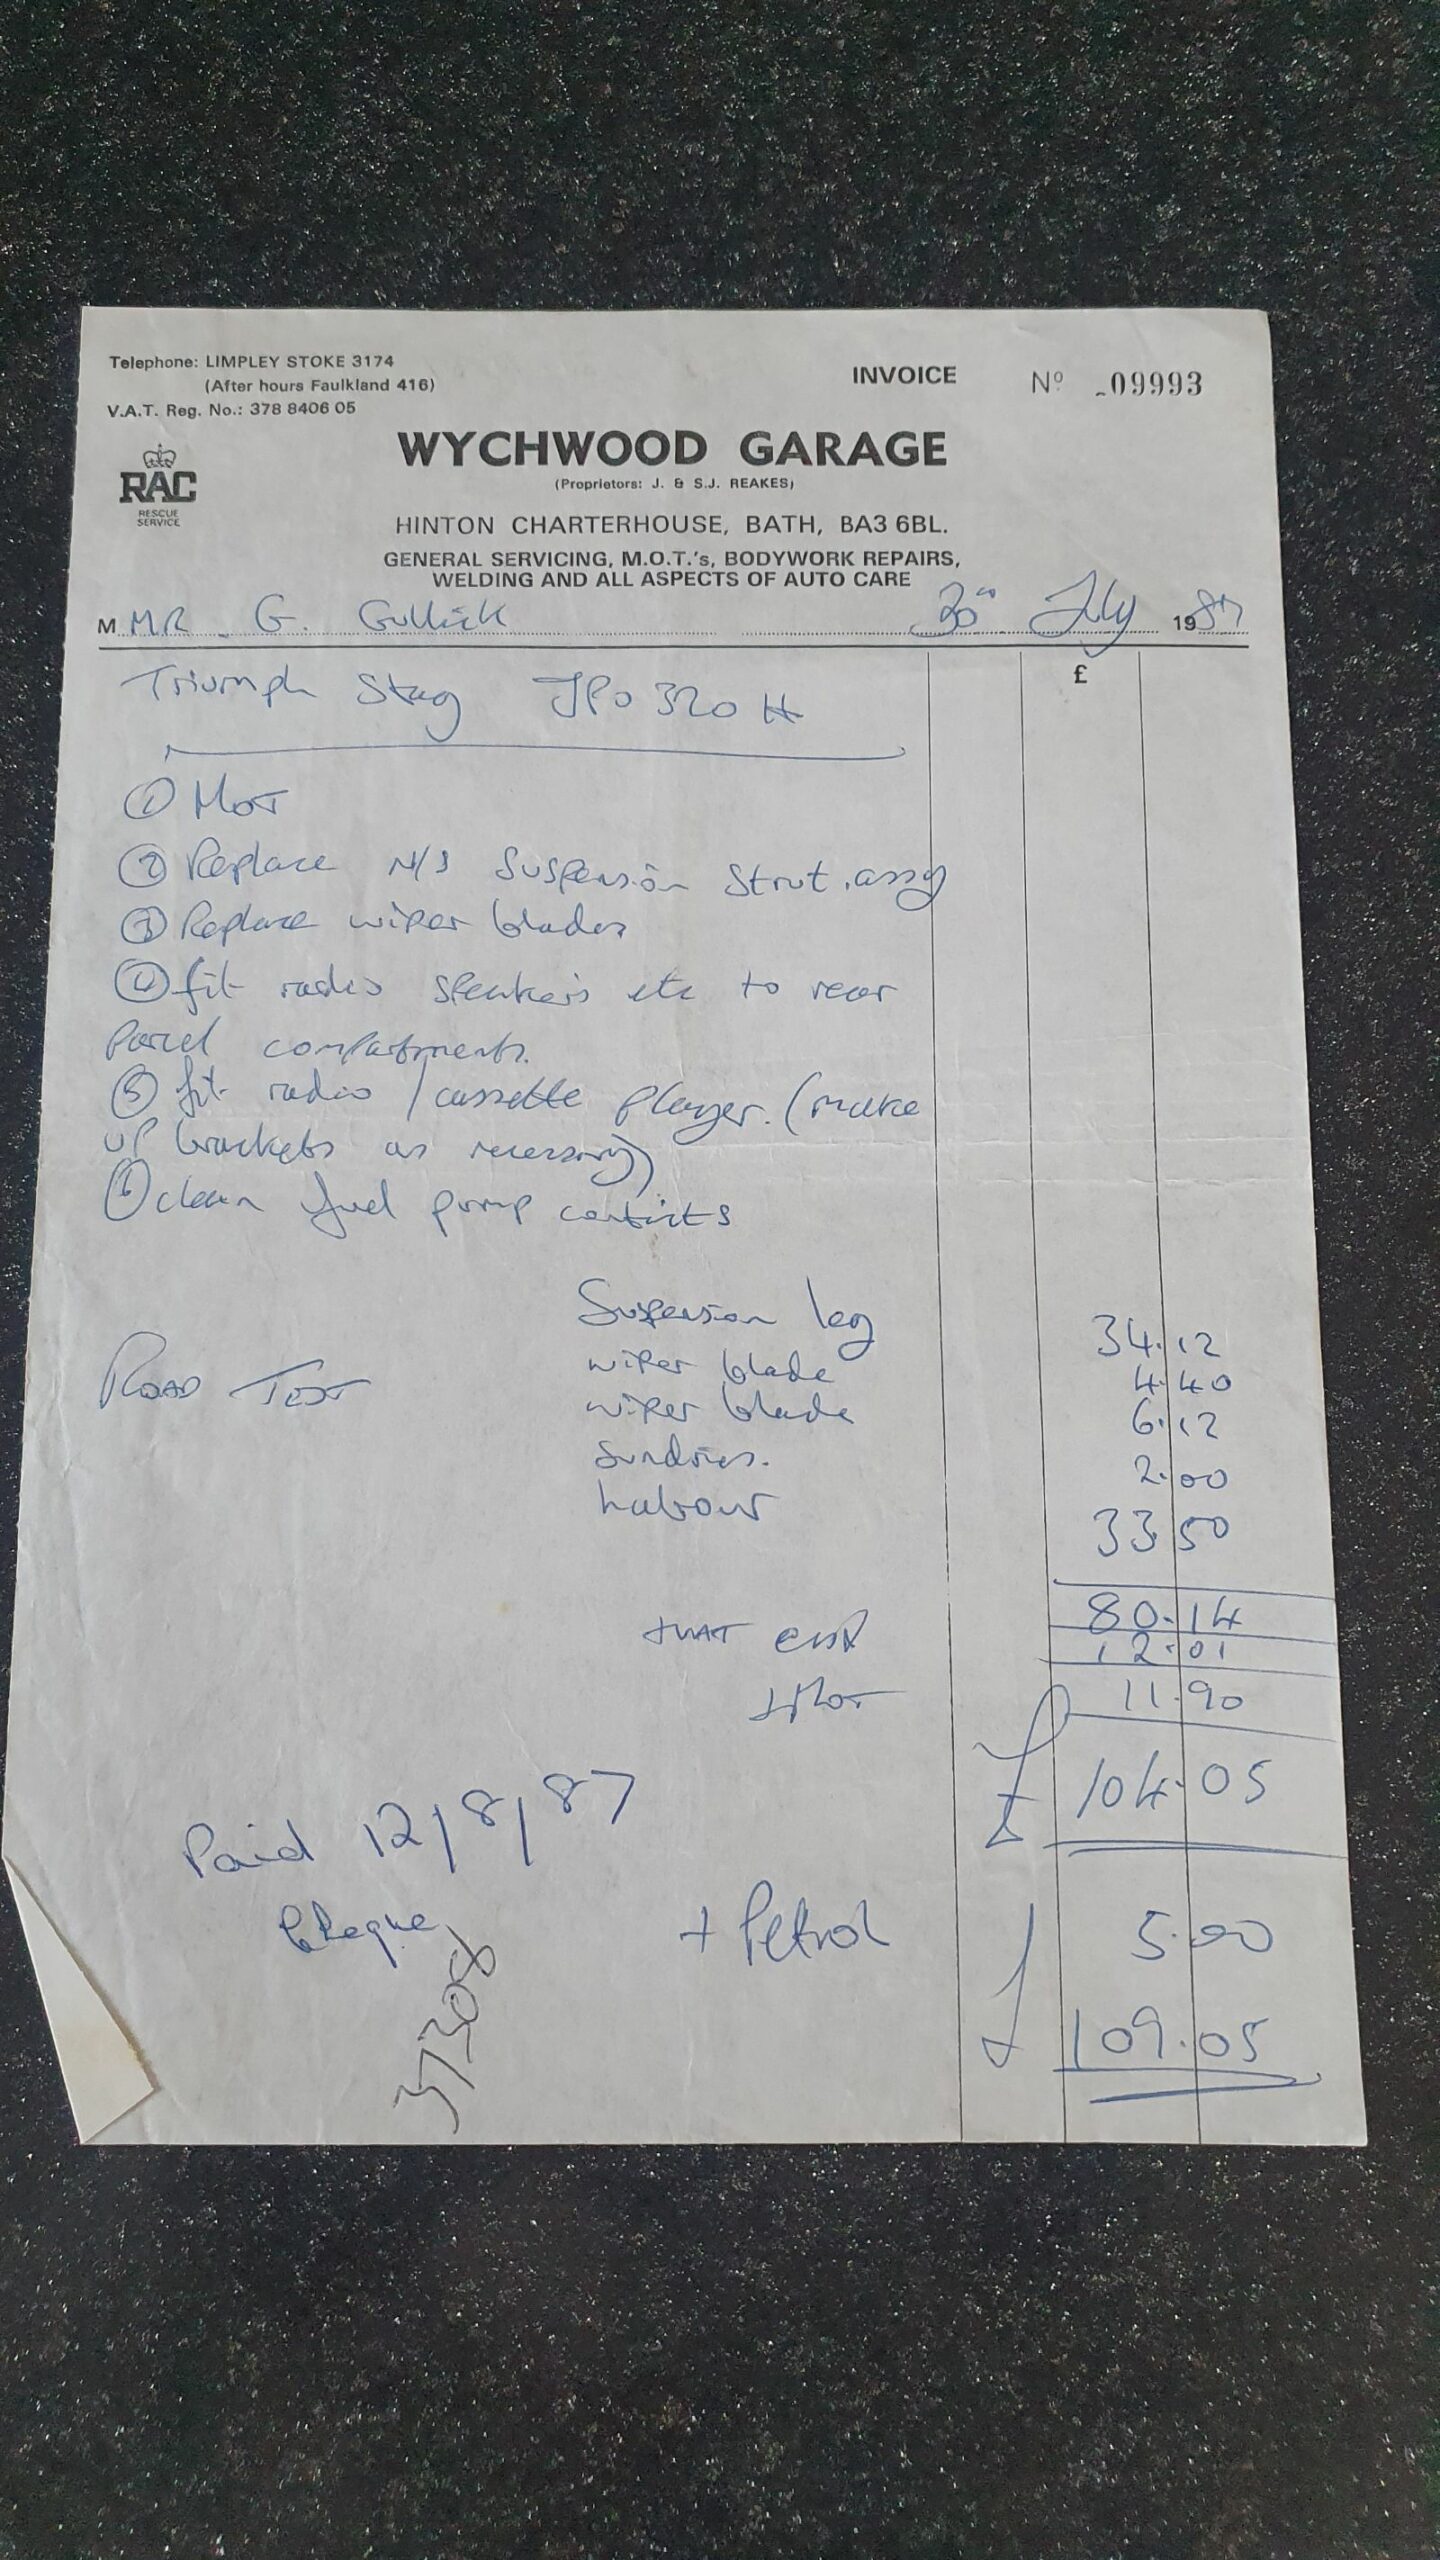 Telephone: LIMPLEY STOKE 3174
(After hours Faulkland 416)
V.A.T. Reg. No.: 378 8406 05
INVOICE Nº 09993
RAC
RESCUE
SERVICE
WYCHWOOD GARAGE
(Proprietors: J. & S.J. REAKES)
HINTON CHARTERHOUSE, BATH, BA3 6BL.
GENERAL SERVICING, M.O.T.'s, BODYWORK REPAIRS,
WELDING AND ALL ASPECTS OF AUTO CARE
M MR. G. Gullick 30th July 1987
£
Triumph Stag JPO 320 H
① MOT
② Replace N/S Suspension Strut assy
③ Replace wiper blades
④ fit radio speakers etc to rear
parcel compartments.
⑤ fit radio / cassette player. (make
up brackets as necessary)
⑥ clean fuel pump contacts
Suspension leg 34.12
ROAD TEST
wiper blade 4.40
wiper blade 6.12
Sundries. 2.00
Labour 33.50
80.14
+VAT 12.01
+MOT 11.90
£ 104.05
Paid 12/8/87
Cheque
37308
+ Petrol 5.00
£ 109.05